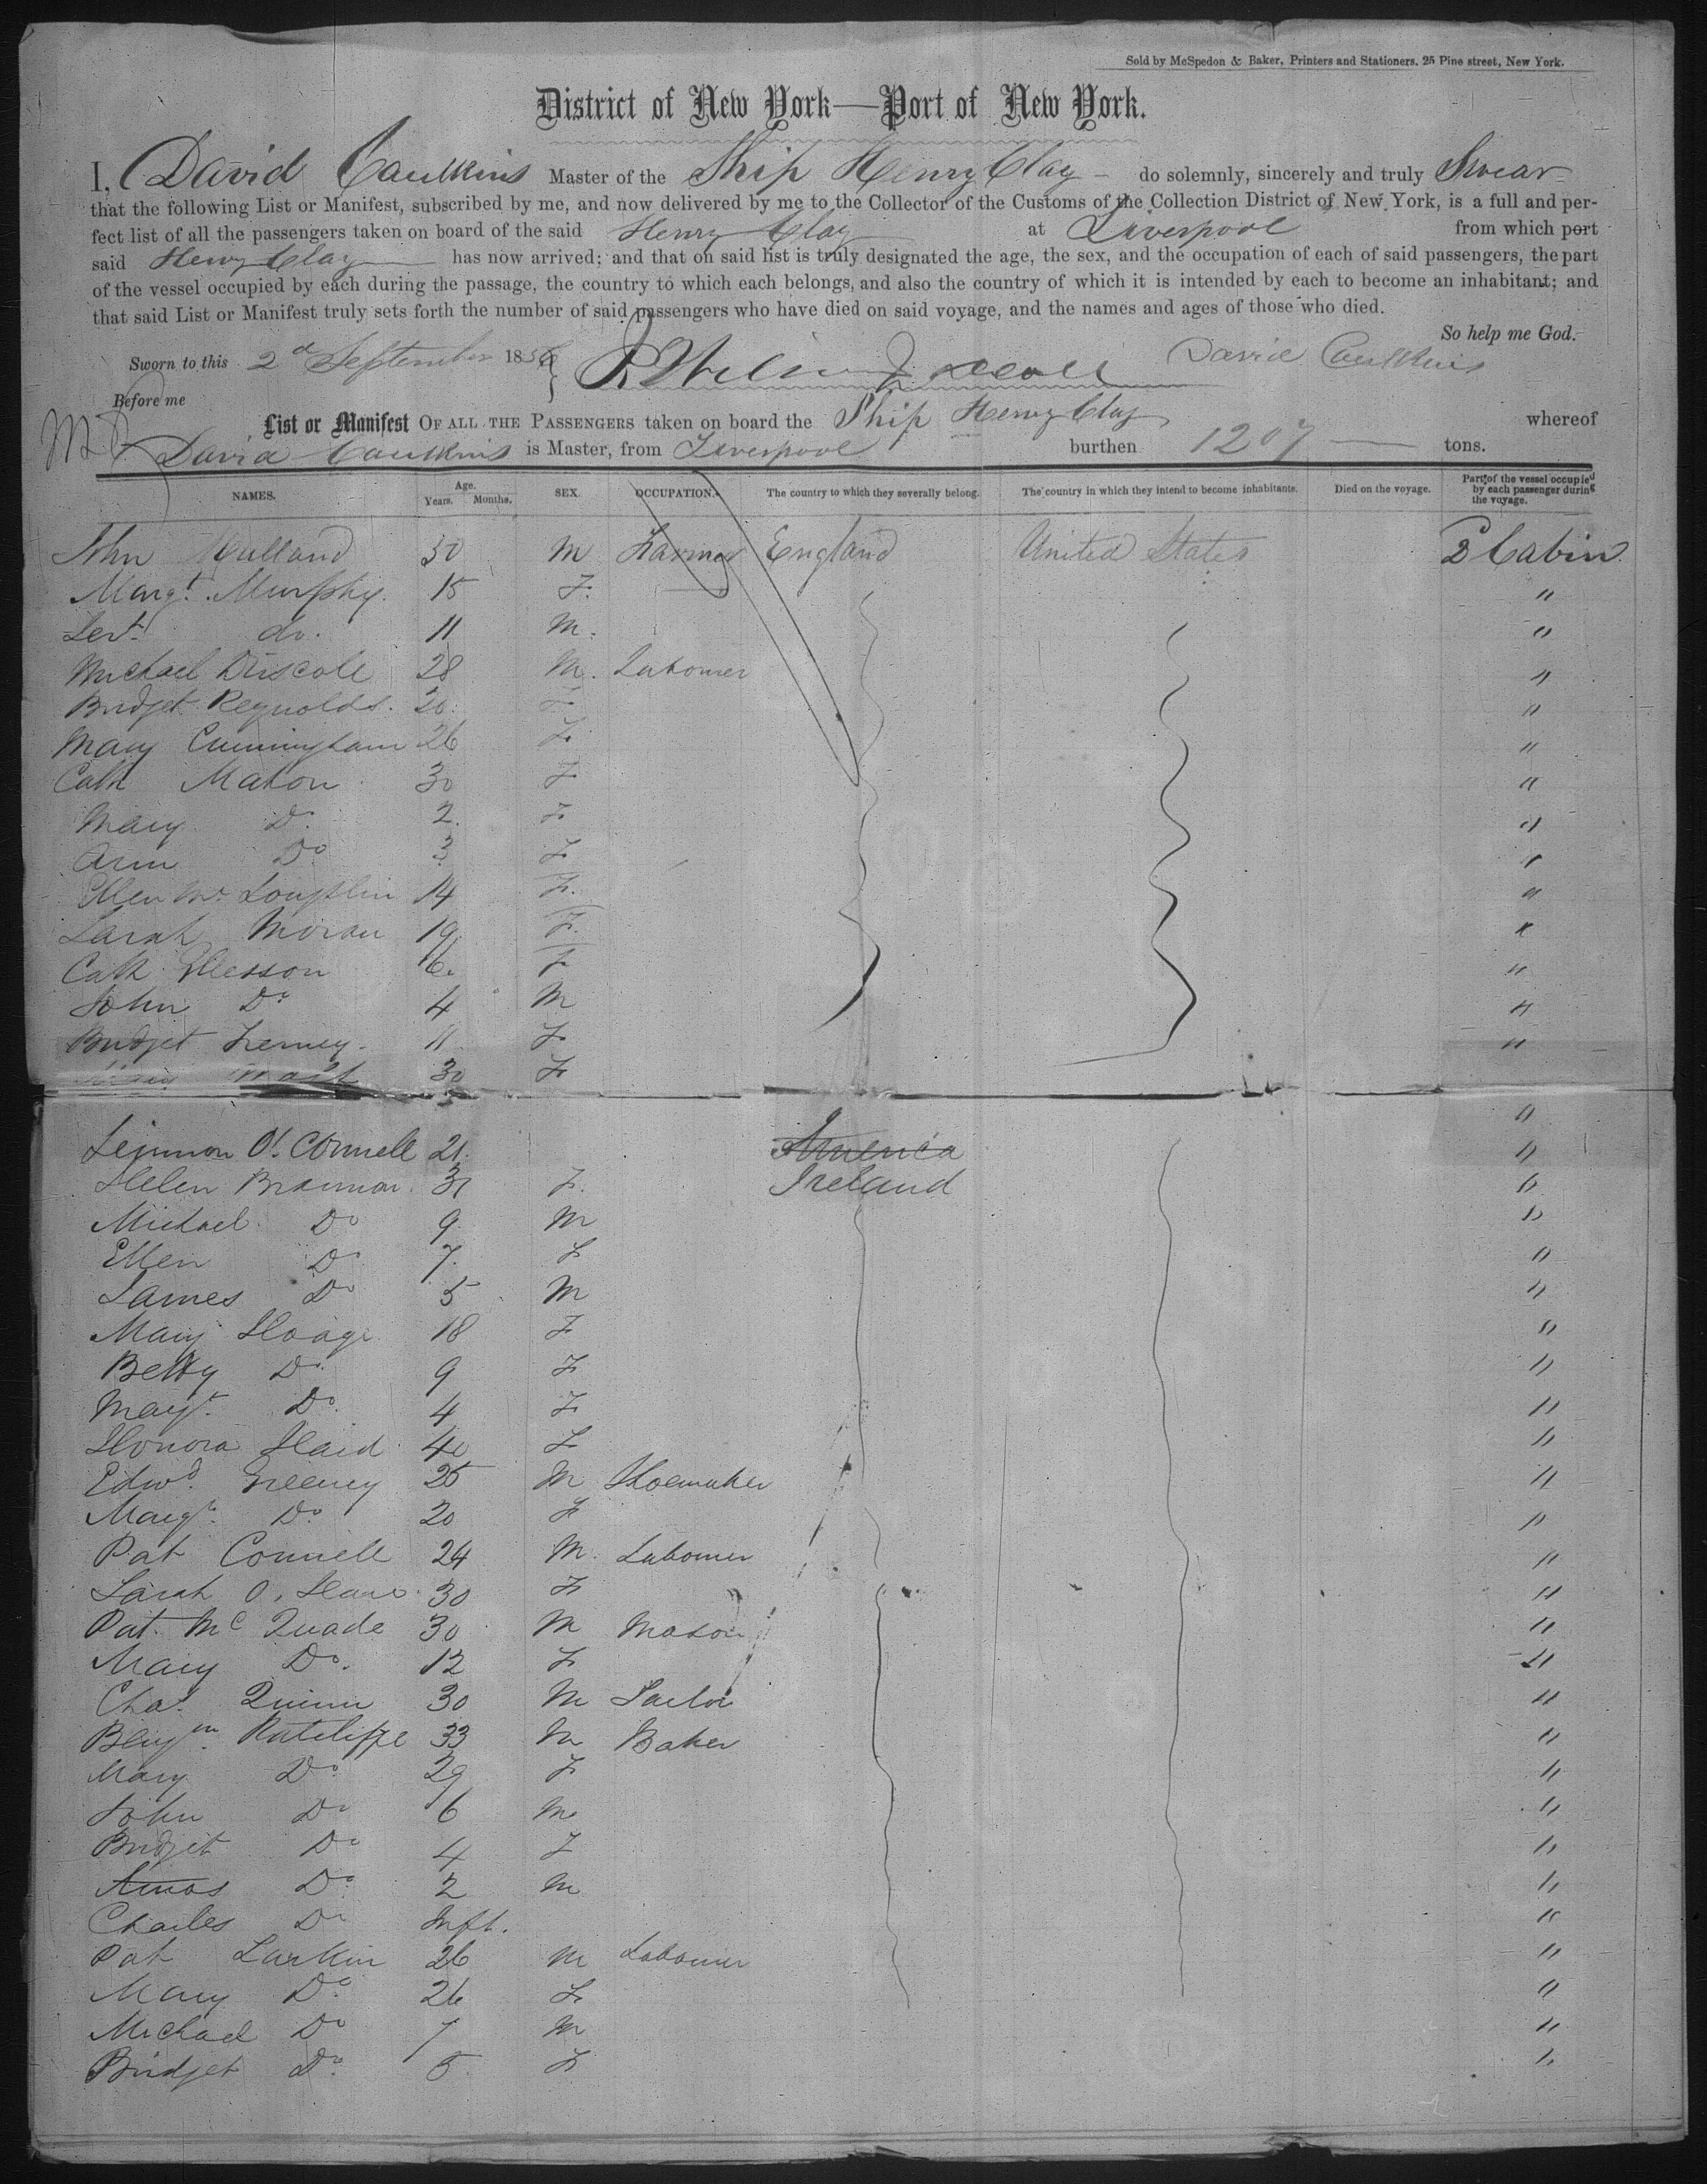 Sold by McSpedon & Baker, Printers and Stationers, 25 Pine street, New York.
District of New York—Port of New York.
I, David Caulkins Master of the Ship Henry Clay do solemnly, sincerely and truly Swear
that the following List or Manifest, subscribed by me, and now delivered by me to the Collector of the Customs of the Collection District of New York, is a full and per-
fect list of all the passengers taken on board of the said Henry Clay at Liverpool from which port
said Henry Clay has now arrived; and that on said list is truly designated the age, the sex, and the occupation of each of said passengers, the part
of the vessel occupied by each during the passage, the country to which each belongs, and also the country of which it is intended by each to become an inhabitant; and
that said List or Manifest truly sets forth the number of said passengers who have died on said voyage, and the names and ages of those who died.
So help me God.
Sworn to this 2d September 1856 David Caulkins
Before me
List or Manifest OF ALL THE PASSENGERS taken on board the Ship Henry Clay whereof
David Caulkins is Master, from Liverpool burthen 1207 tons.
NAMES. Age. Years. Months. SEX. OCCUPATION. The country to which they severally belong. The country in which they intend to become inhabitants. Died on the voyage. Part of the vessel occupied by each passenger during the voyage.
John 50 M Farmer England United States 2 Cabin
Margt. Murphy. 15 F. "
do. 11 M. "
Michael Driscole 28 M. Labourer "
Bridget Reynolds. 20. F "
Mary Cunningham 26 F. "
Cath Mahon 30 F "
Mary Do. 2. F "
Ann Do. 3 F "
Ellen Mc Loughlin 14 F. "
Sarah Moran 19. F. "
Cath Glesson 6. F "
John Do 4 M "
Bridget 11 F "
30 F
"
O'. Connell 21. America "
Helen Brannon. 31 F. Ireland "
Michael Do 9. M "
Ellen Do 7. F "
James Do 5 M "
Mary 18 F "
Betty Do. 9 F "
Margt. Do. 4 F "
Honora 40 F "
Edwd. Greeney 25 M Shoemaker "
Margt. Do. 20 F "
Pat Connell 24 M. Labourer "
Sarah O, 30 F "
Pat. Mc Quade 30 M Mason "
Mary Do. 12 F "
Chas. Quinn 30 M Tailor "
Benjm. Ratcliffe 33 M Baker "
Mary Do 29 F "
John Do 6 M "
Bridget Do 4 F "
Amos Do. 2 M "
Charles Do Inft. "
Pat Larkin 26 M Labourer "
Mary Do. 26 F "
Michael Do 7 M "
Bridget Do. 5. F "